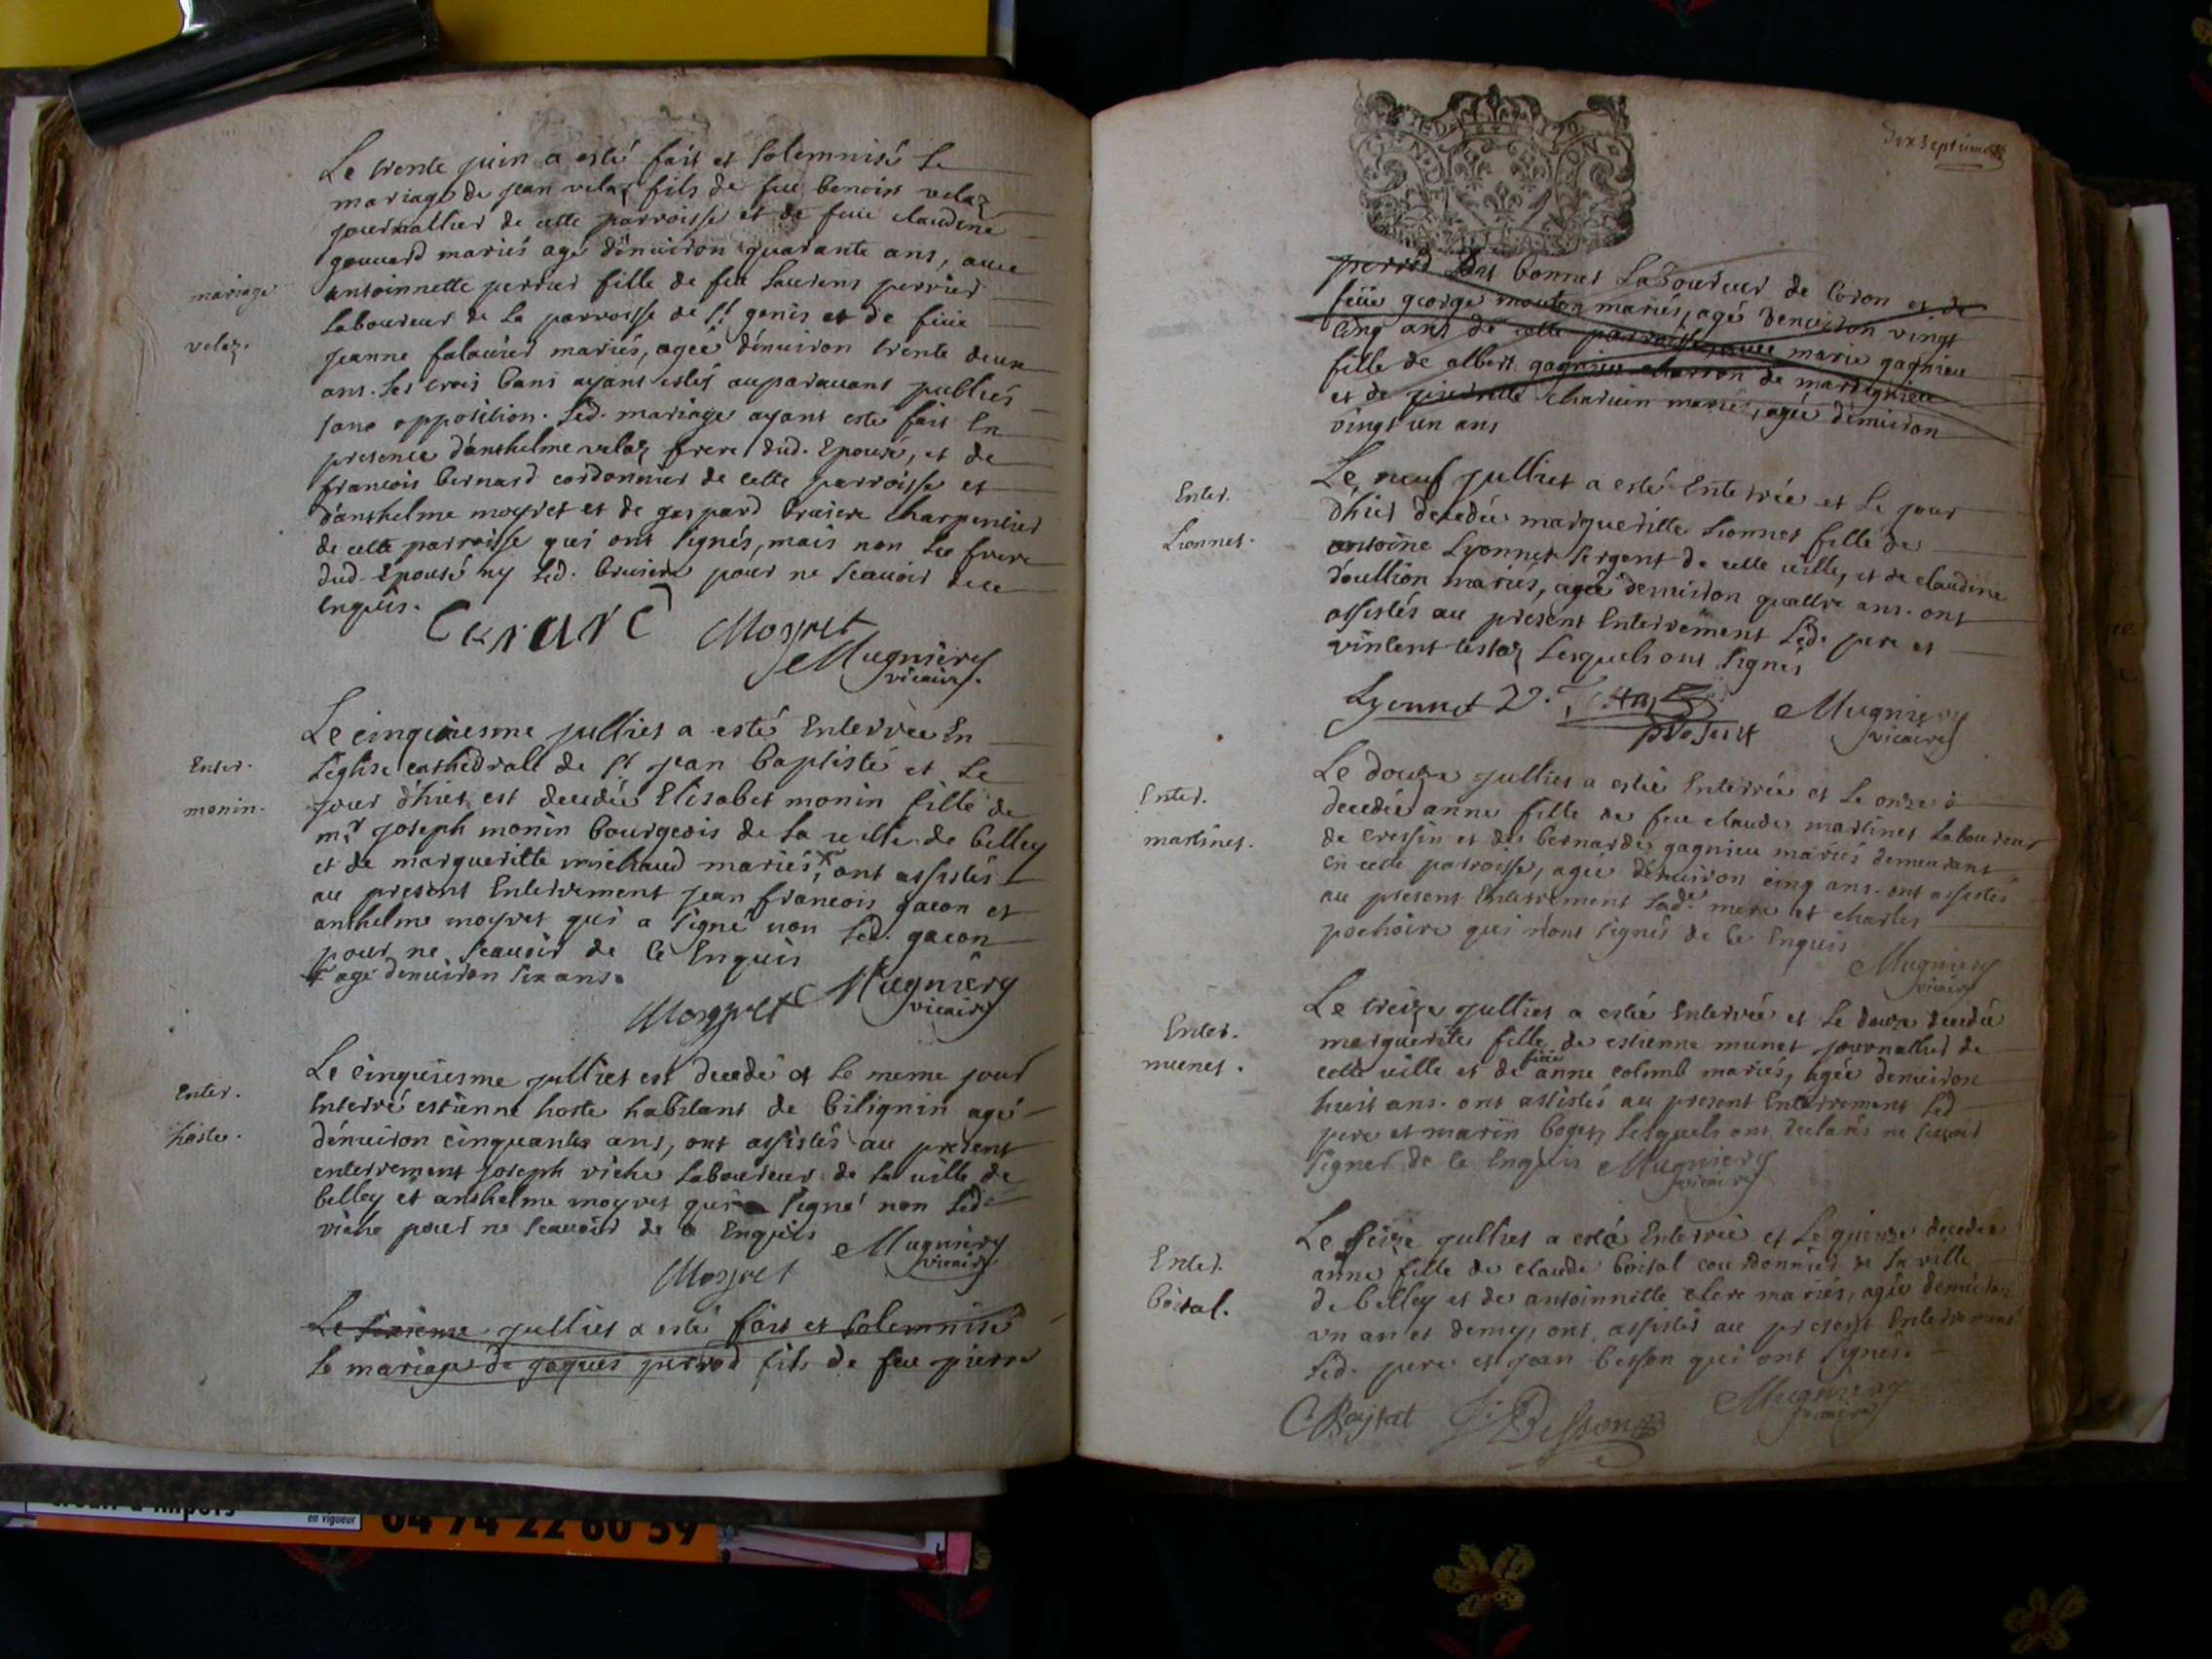 Le trente juin a esté fait et solemnisé le
mariage de jean velaz fils de feu benoist velaz
journallier de cette parroisse et de feüe claudine
gouuard mariés agé d'enuiron quarante ans, auec
mariage
antoinnette perrier fille de feu laurens perrier
laboureur de la parroisse de St genis et de feüe
velaz.
jeanne falauier mariés, agée d'enuiron trente deux
ans. les trois bans ayant estés auparauant publiés
sans opposition. led. mariage ayant esté fait En
presence d'anthelme velaz frere dud. Epousé, et de
francois bernard cordonnier de cette parroisse et
d'anthelme moyret et de gaspard bruiere charpentier
de cette parroisse qui ont signés, mais non le frere
dud. Epousé ny led. bruiere pour ne scauoir de ce
Enquis.
Moyret
Mugniery
vicaire.
Le cinquiesme julliet a esté Enterrée En
Enter.
l'eglise cathedrale de St jean baptiste et le
monin.
jour d'hier est decedée Elizabet monin fille de
mr joseph monin bourgeois de la ville de belley
et de marguerite michaud mariés, + ont assistés
au present Enterrement jean francois gacon et
anthelme moyret qui a signé non led. gacon
pour ne scauoir de ce Enquis
+ agé denuiron six ans.
Moyret Mugniery
vicaire
Le cinquiesme julliet est decedé et le meme jour
Enter.
Enterré estienne hoste habitant de bilignin agé
hoste.
d'enuiron cinquante ans, ont assistés au present
enterrement joseph viche laboureur de la ville de
belley et anthelme moyret qui a signé non led
viche pour ne scauoir de ce Enquis
Mugniery
vicaire
Moyret
Le sixieme julliet a esté fait et solemnisé
le mariage de jaques perrod fils de feu pierre
dixseptieme
perrod dit bonnet laboureur de coron et de
feüe george mouton mariés, agé denuiron vingt
cinq ans de cette parroisse, auec marie gagnieu
fille de albert gagnieu charron de martignieu
et de pierrette charuin mariés, agée d'enuiron
vingt un ans
Le neuf julliet a esté Enterrée et le jour
Enter.
d'hier decedée marguerite lionnet fille de
Lionnet.
antoine Lyonnet sergent de cette ville, et de claudine
doullion mariés, agée denuiron quattre ans. ont
assistés au present Enterrement led. pere et
vincent testaz lesquels ont signés
Lyonnet
present
Mugniery
vicaire
Le douze julliet a estée Enterrée et le onze
Enter.
decedée anne fille de feu claude martinet laboureur
martinet.
de cressin et de bernarde gagnieu mariés demeurant
en cette parroisse, agée denuiron cinq ans. ont assistés
au present Enterrement lad. mere et charles
pochoire qui n'ont signés de ce Enquis
Mugniery
vicaire
Le treize julliet a estée Enterrée et le douze decedée
Enter.
marguerite fille de estienne munet journallier de
munet.
cette ville et de feüe anne colomb mariés, agée denuiron
huit ans. ont assistés au present Enterrement led
pere et marin boget, lesquels ont declarés ne scauoir
signer de ce Enquis Mugniery
vicaire
Le seize julliet a esté Enterrée et le quinze decedée
Enter.
anne fille de claude boital courdonnier de la ville
boital.
de belley et de antoinnette clerc mariés, agée denuiron
vn an et demy, ont assistés au present Enterrement
led. pere et jean besson qui ont signés.
C Boytat J. Besson
Mugniery
vicaire
en vigueur
04 74 22 60 59